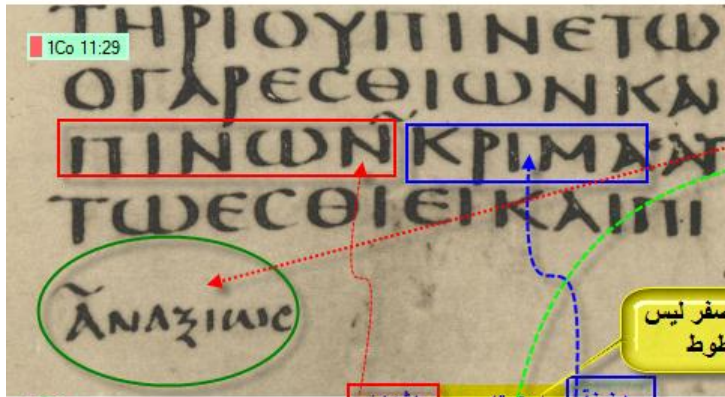 1Co 11:29
ΤΗΡΙΟΥΠΙΝΕΤΩ
ΟΓΑΡΕΣΘΙΩΝΚΑΙ
ΠΙΝΩΝ ΚΡΙΜΑ ΑΥ
ΤΩΕΣΘΙΕΙΚΑΙΠΙ
ΑΝΑΞΙΩΣ
صفر ليس